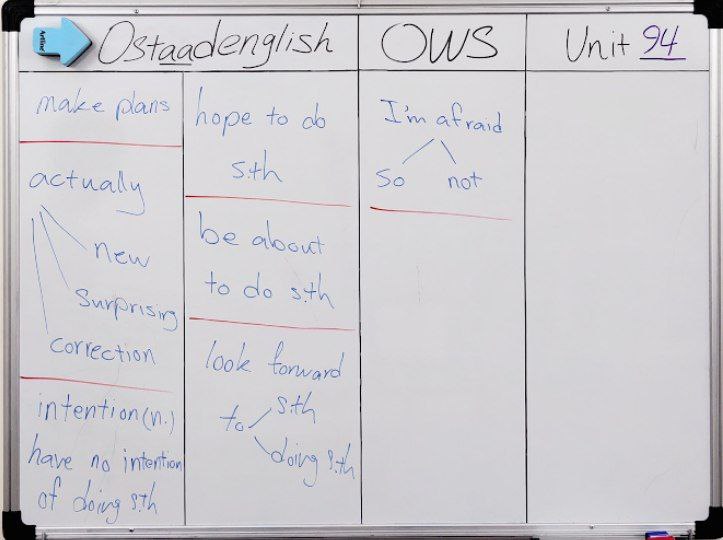 Ostaadenglish
OWS
Unit 94
make plans
actually
new
surprising
correction
intention (n.)
have no intention
of doing s.th
hope to do
s.th
be about
to do s.th
look forward
to
s.th
doing s.th
I'm afraid
so
not